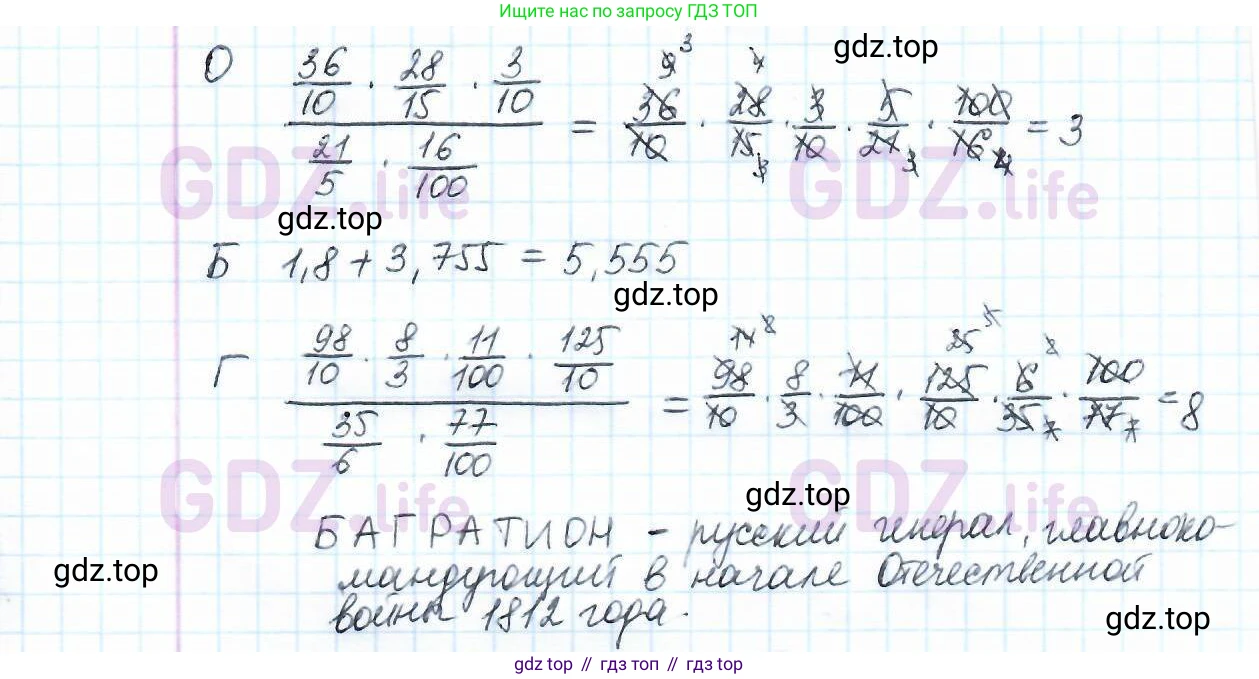 Ищите нас по запросу ГДЗ ТОП
gdz.top
О 36/10 · 28/15 · 3/10 / 21/5 · 16/100 = 36/10 · 28/15 · 3/10 · 5/21 · 100/16 = 3
gdz.top
Б 1,8 + 3,755 = 5,555
gdz.top
Г 98/10 · 8/3 · 11/100 · 125/10 / 35/6 · 77/100 = 98/10 · 8/3 · 11/100 · 125/10 · 6/35 · 100/77 = 8
GDZ.life GDZ.life
GDZ.life GDZ.life
gdz.top
БАГРАТИОН – русский генерал, главноко-
мандующий в начале Отечественной
войны 1812 года.
gdz.top
gdz.top
gdz.top // гдз топ // gdz.top